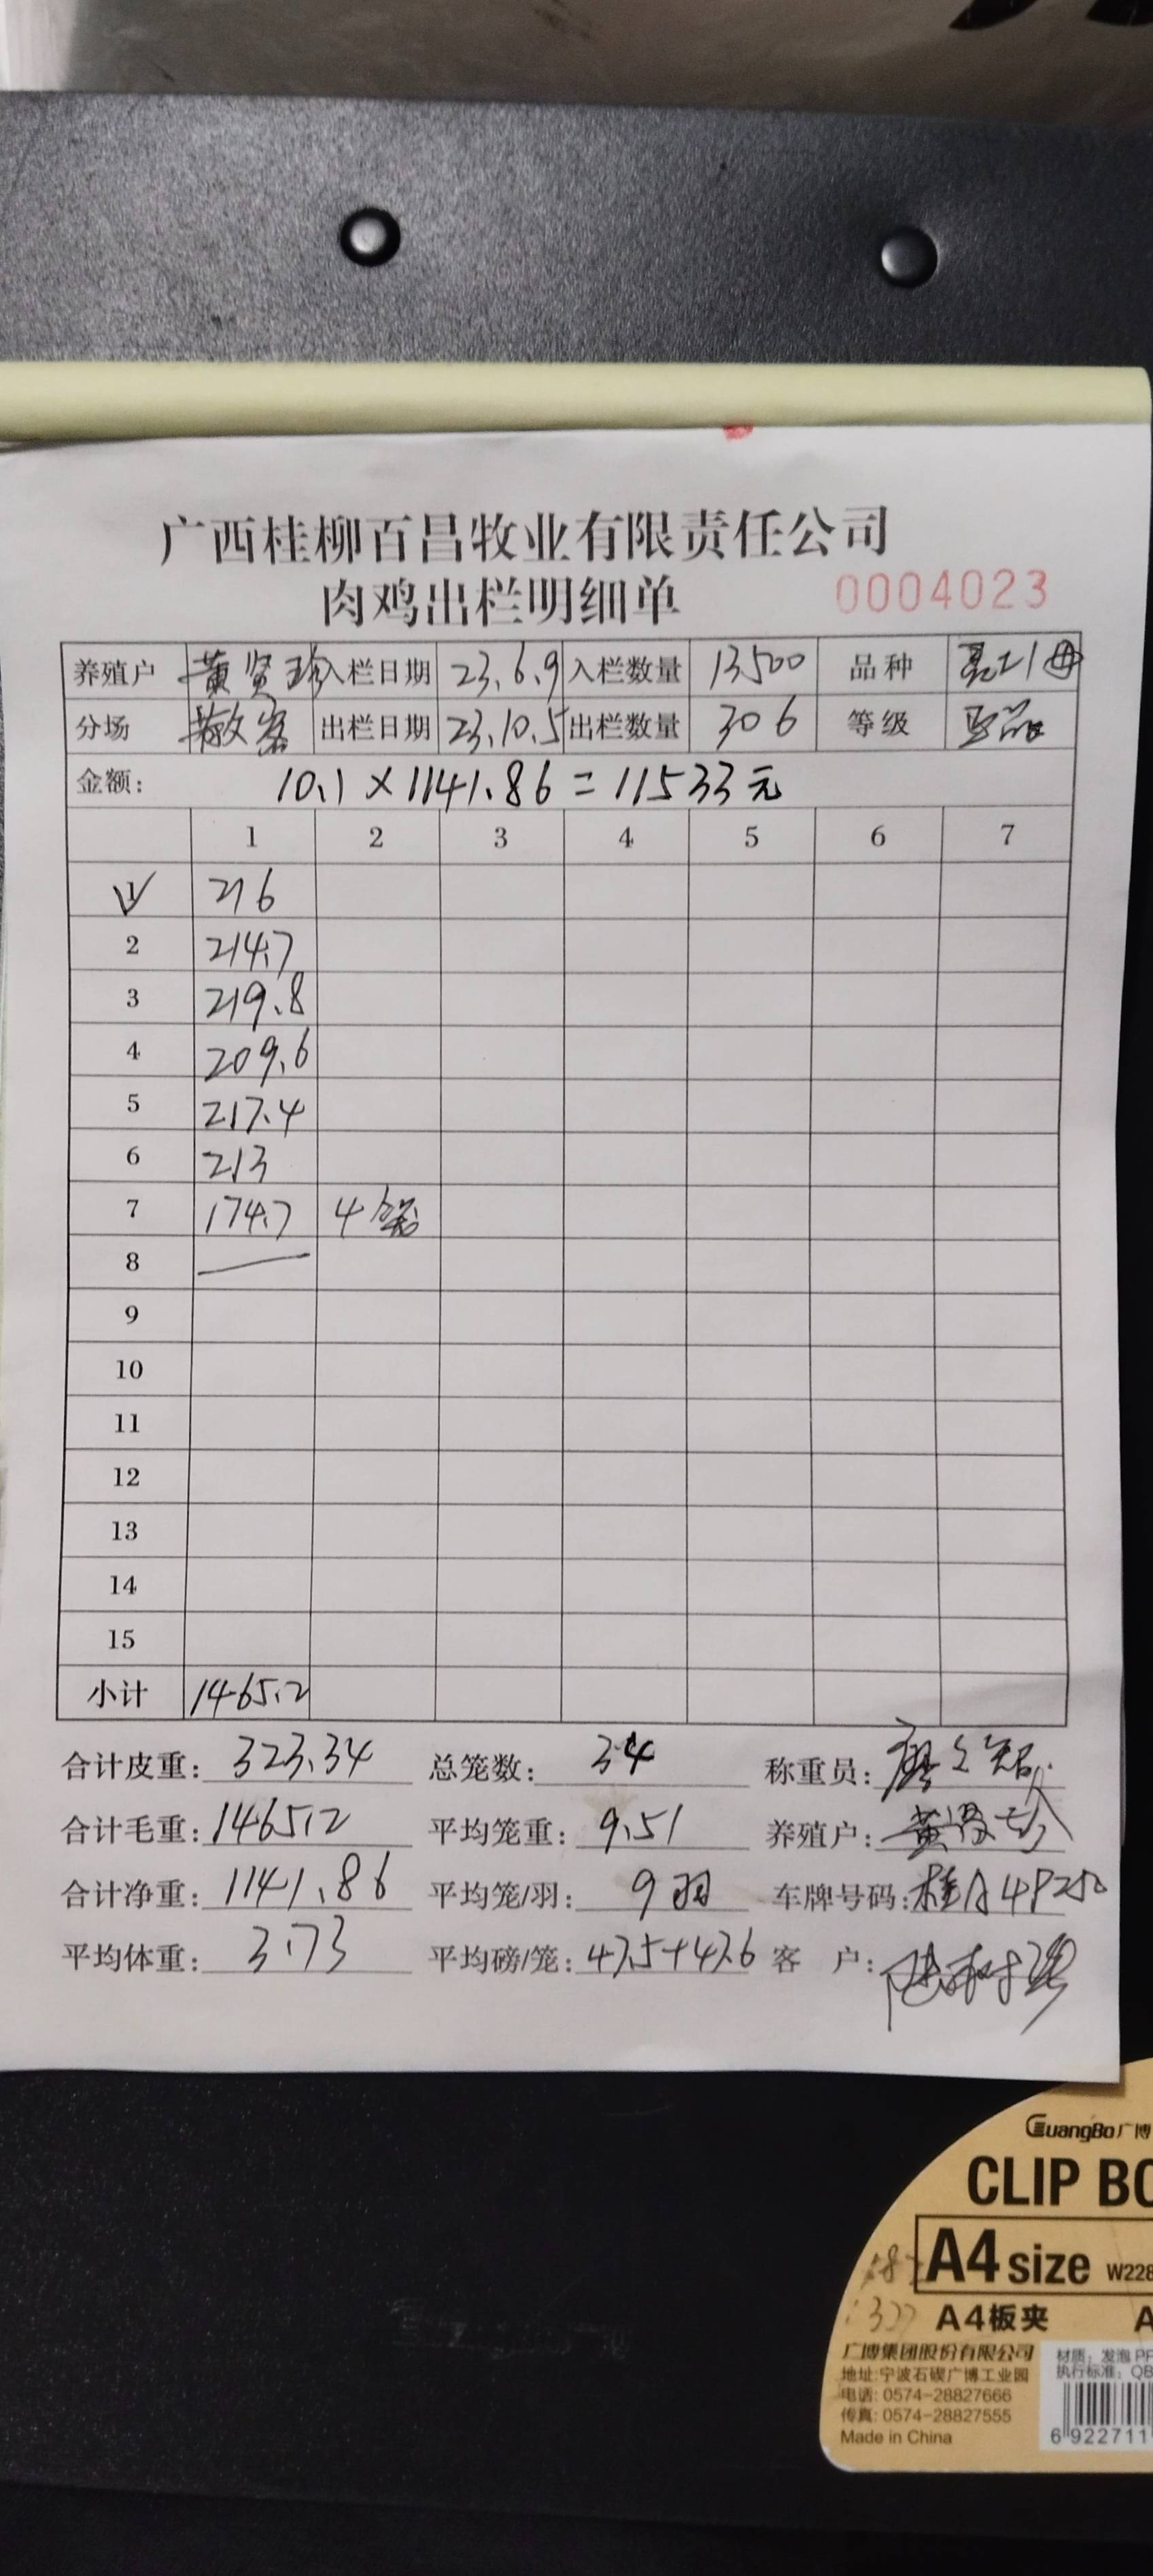 广西桂柳百昌牧业有限责任公司
肉鸡出栏明细单 0004023
养殖户 黄贤珍 入栏日期 23.6.9 入栏数量 13500 品种
分场 散客 出栏日期 23.10.5 出栏数量 306 等级 正品
金额: 10.1×1141.86=11533元
1 2 3 4 5 6 7
1 216
2 214.7
3 219.8
4 209.6
5 217.4
6 213
7 174.7 4笼
8
9
10
11
12
13
14
15
小计 1465.2
合计皮重: 323.34 总笼数: 34 称重员:
合计毛重: 1465.2 平均笼重: 9.51 养殖户: 黄贤珍
合计净重: 1141.86 平均笼/羽: 9羽 车牌号码: 桂A4P250
平均体重: 3.73 平均磅/笼: 47.5+47.6 客 户:
GuangBo广博
CLIP BO
A4 size W228
A4板夹 A
广博集团股份有限公司
地址:宁波石碶广博工业园
电话: 0574-28827666
传真: 0574-28827555
Made in China
材质: 发泡PP
执行标准: QB
6 922711